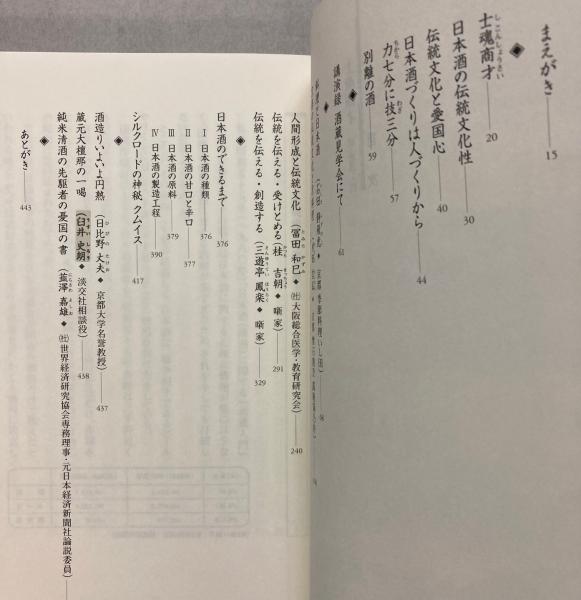 まえがき 15
◆
士魂商才 20
しこんしょうさい
日本酒の伝統文化性 30
伝統文化と愛国心 40
日本酒づくりは人づくりから 44
力七分に技三分 57
ちから わざ
別離の酒 59
◆
講演録 酒蔵見学会にて 61
◆
人間形成と伝統文化(冨田 和巳◆(社)大阪総合医学・教育研究会) 240
とみた かずみ
伝統を伝える・受けとめる(桂 吉朝◆噺家) 291
かつら きっちょう
伝統を伝える・創造する(三遊亭 鳳楽◆噺家) 329
さんゆうてい ほうらく
◆
日本酒のできるまで 376
Ⅰ 日本酒の種類 376
Ⅱ 日本酒の甘口と辛口 377
Ⅲ 日本酒の原料 379
Ⅳ 日本酒の製造工程 390
シルクロードの神秘 クムイス 417
◆
酒造りいよいよ円熟(日比野 丈夫◆京都大学名誉教授) 437
ひびの たけお
蔵元大檀那の一喝(臼井 史朗◆淡交社相談役) 438
うすい しろう
純米清酒の先駆者の憂国の書(韮澤 嘉雄◆(社)世界経済研究協会専務理事・元日本経済新聞社論説委員)
にらさわ よしお
◆
あとがき 443